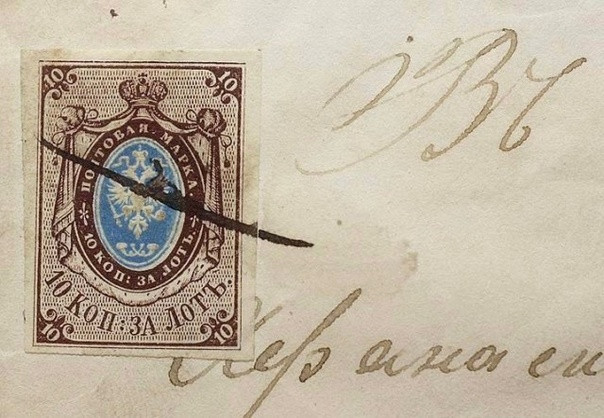 10 10
ПОЧТОВАЯ МАРКА
10 КОП: ЗА ЛОТЪ.
10 КОП: ЗА ЛОТЪ.
10 10
Въ